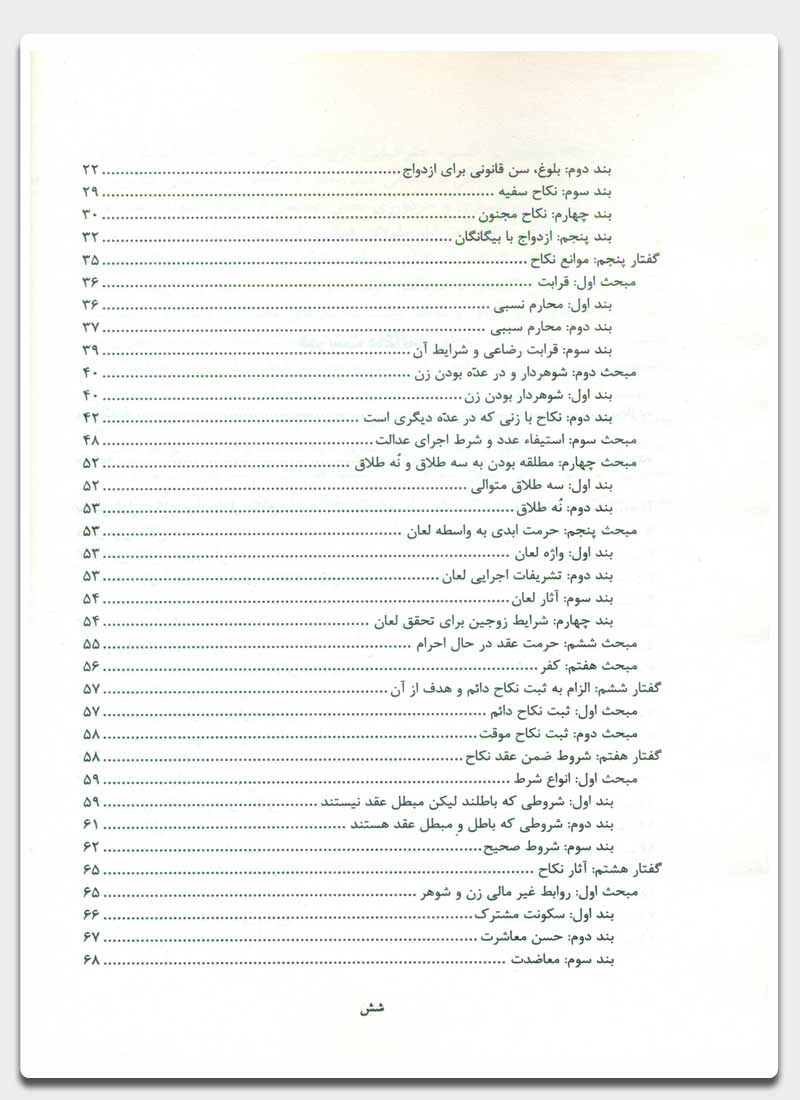 بند دوم: بلوغ، سن قانونی برای ازدواج ........ ۲۲
بند سوم: نکاح سفیه ........ ۲۹
بند چهارم: نکاح مجنون ........ ۳۰
بند پنجم: ازدواج با بیگانگان ........ ۳۲
گفتار پنجم: موانع نکاح ........ ۳۵
مبحث اول: قرابت ........ ۳۶
بند اول: محارم نسبی ........ ۳۶
بند دوم: محارم سببی ........ ۳۷
بند سوم: قرابت رضاعی و شرایط آن ........ ۳۹
مبحث دوم: شوهردار و در عدّه بودن زن ........ ۴۰
بند اول: شوهردار بودن زن ........ ۴۰
بند دوم: نکاح با زنی که در عدّه دیگری است ........ ۴۲
مبحث سوم: استیفاء عدد و شرط اجرای عدالت ........ ۴۸
مبحث چهارم: مطلقه بودن به سه طلاق و نُه طلاق ........ ۵۲
بند اول: سه طلاق متوالی ........ ۵۲
بند دوم: نُه طلاق ........ ۵۳
مبحث پنجم: حرمت ابدی به واسطه لعان ........ ۵۳
بند اول: واژه لعان ........ ۵۳
بند دوم: تشریفات اجرایی لعان ........ ۵۳
بند سوم: آثار لعان ........ ۵۴
بند چهارم: شرایط زوجین برای تحقق لعان ........ ۵۴
مبحث ششم: حرمت عقد در حال احرام ........ ۵۵
مبحث هفتم: کفر ........ ۵۶
گفتار ششم: الزام به ثبت نکاح دائم و هدف از آن ........ ۵۷
مبحث اول: ثبت نکاح دائم ........ ۵۷
مبحث دوم: ثبت نکاح موقت ........ ۵۸
گفتار هفتم: شروط ضمن عقد نکاح ........ ۵۸
مبحث اول: انواع شرط ........ ۵۹
بند اول: شروطی که باطلند لیکن مبطل عقد نیستند ........ ۵۹
بند دوم: شروطی که باطل و مبطل عقد هستند ........ ۶۱
بند سوم: شروط صحیح ........ ۶۲
گفتار هشتم: آثار نکاح ........ ۶۵
مبحث اول: روابط غیر مالی زن و شوهر ........ ۶۵
بند اول: سکونت مشترک ........ ۶۶
بند دوم: حسن معاشرت ........ ۶۷
بند سوم: معاضدت ........ ۶۸
شش